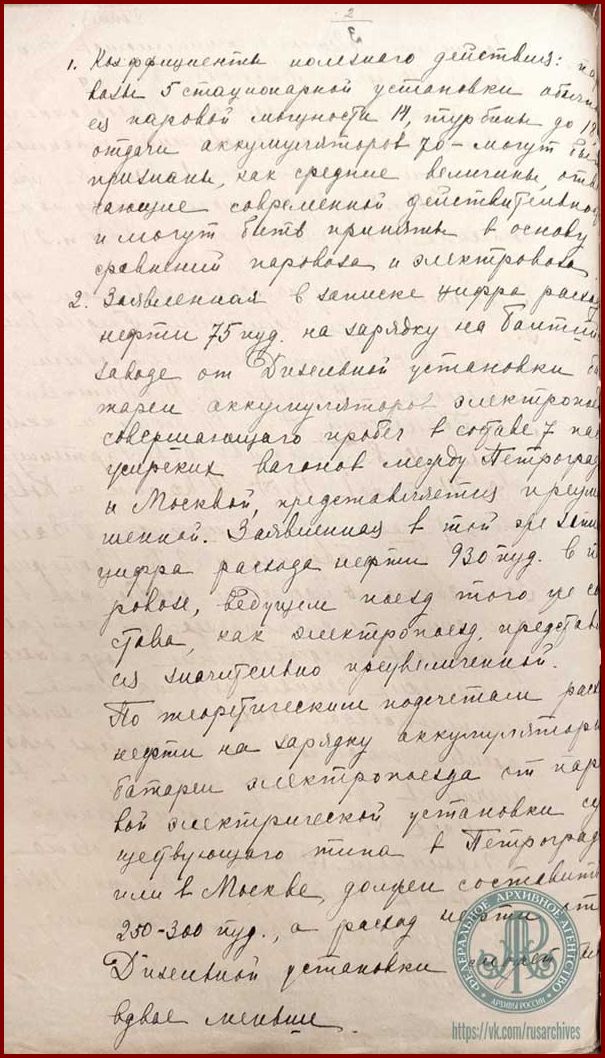 2
3
1. Коэффициенты полезного действия: па
воза 5 стационарной установки обычн
ся паровой мощности 14, турбины до 18
отдачи аккумуляторов 70 – могут бы
признаны, как средние величины, отве
чающие современной действительнос
и могут быть приняты в основу
сравнений паровоза и электровоза.
2. Заявленная в записке цифра расхо
нефти 75 пуд. на зарядку на Балтий
заводе от Дизельной установки ба
тареи аккумуляторов электропоез
совершающего пробег в составе 7 пас
жирских вагонов между Петроград
и Москвой, представляется преуме
шенной. Заявленная в той же запи
цифра расхода нефти 930 пуд. в п
ровозе, ведущем поезд того же со
става, как электропоезд, представ
ся значительно преувеличенной.
По теоретическим подсчетам расх
нефти на зарядку аккумуляторн
батареи электропоезда от паро
вой электрической установки су
ществующего типа в Петроград
или в Москве, должен составить
250-300 пуд., а расход нефти от
Дизельной установки может
вдвое меньше.
ФЕДЕРАЛЬНОЕ АРХИВНОЕ АГЕНТСТВО
АРХИВЫ РОССИИ
https://vk.com/rusarchives